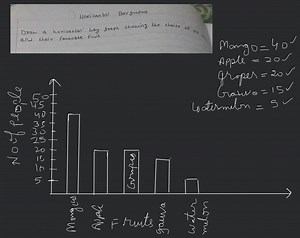 Horizontal Bargraphs
Draw a horizontal bar graph showing the choice of
and their favourite fruit.
Mango = 40 ✓
Apple = 20 ✓
Grapes = 20 ✓
Guava = 15 ✓
Watermelon = 5 ✓
No of People
50
45
40
35
30
25
20
15
10
5
Mango
Apple
Grapes
guava
Water
melon
Fruits